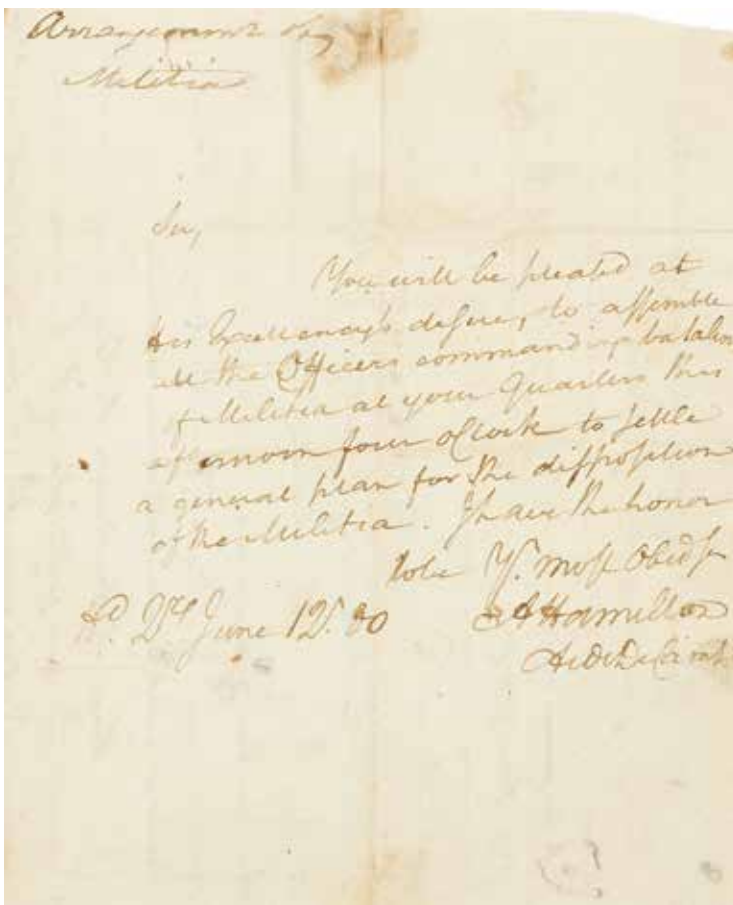 Arrangement of
Militia
Sir,
You will be pleased at
his Excellency's desire, to assemble
all the Officers commanding batalions
of Militia at your Quarters this
afternoon four oClock to settle
a general plan for the disposition
of the Militia. I have the honor
to be Yr. most Obed st
Hd. Qrs June 12. 80
AHamilton
Aide De Camp